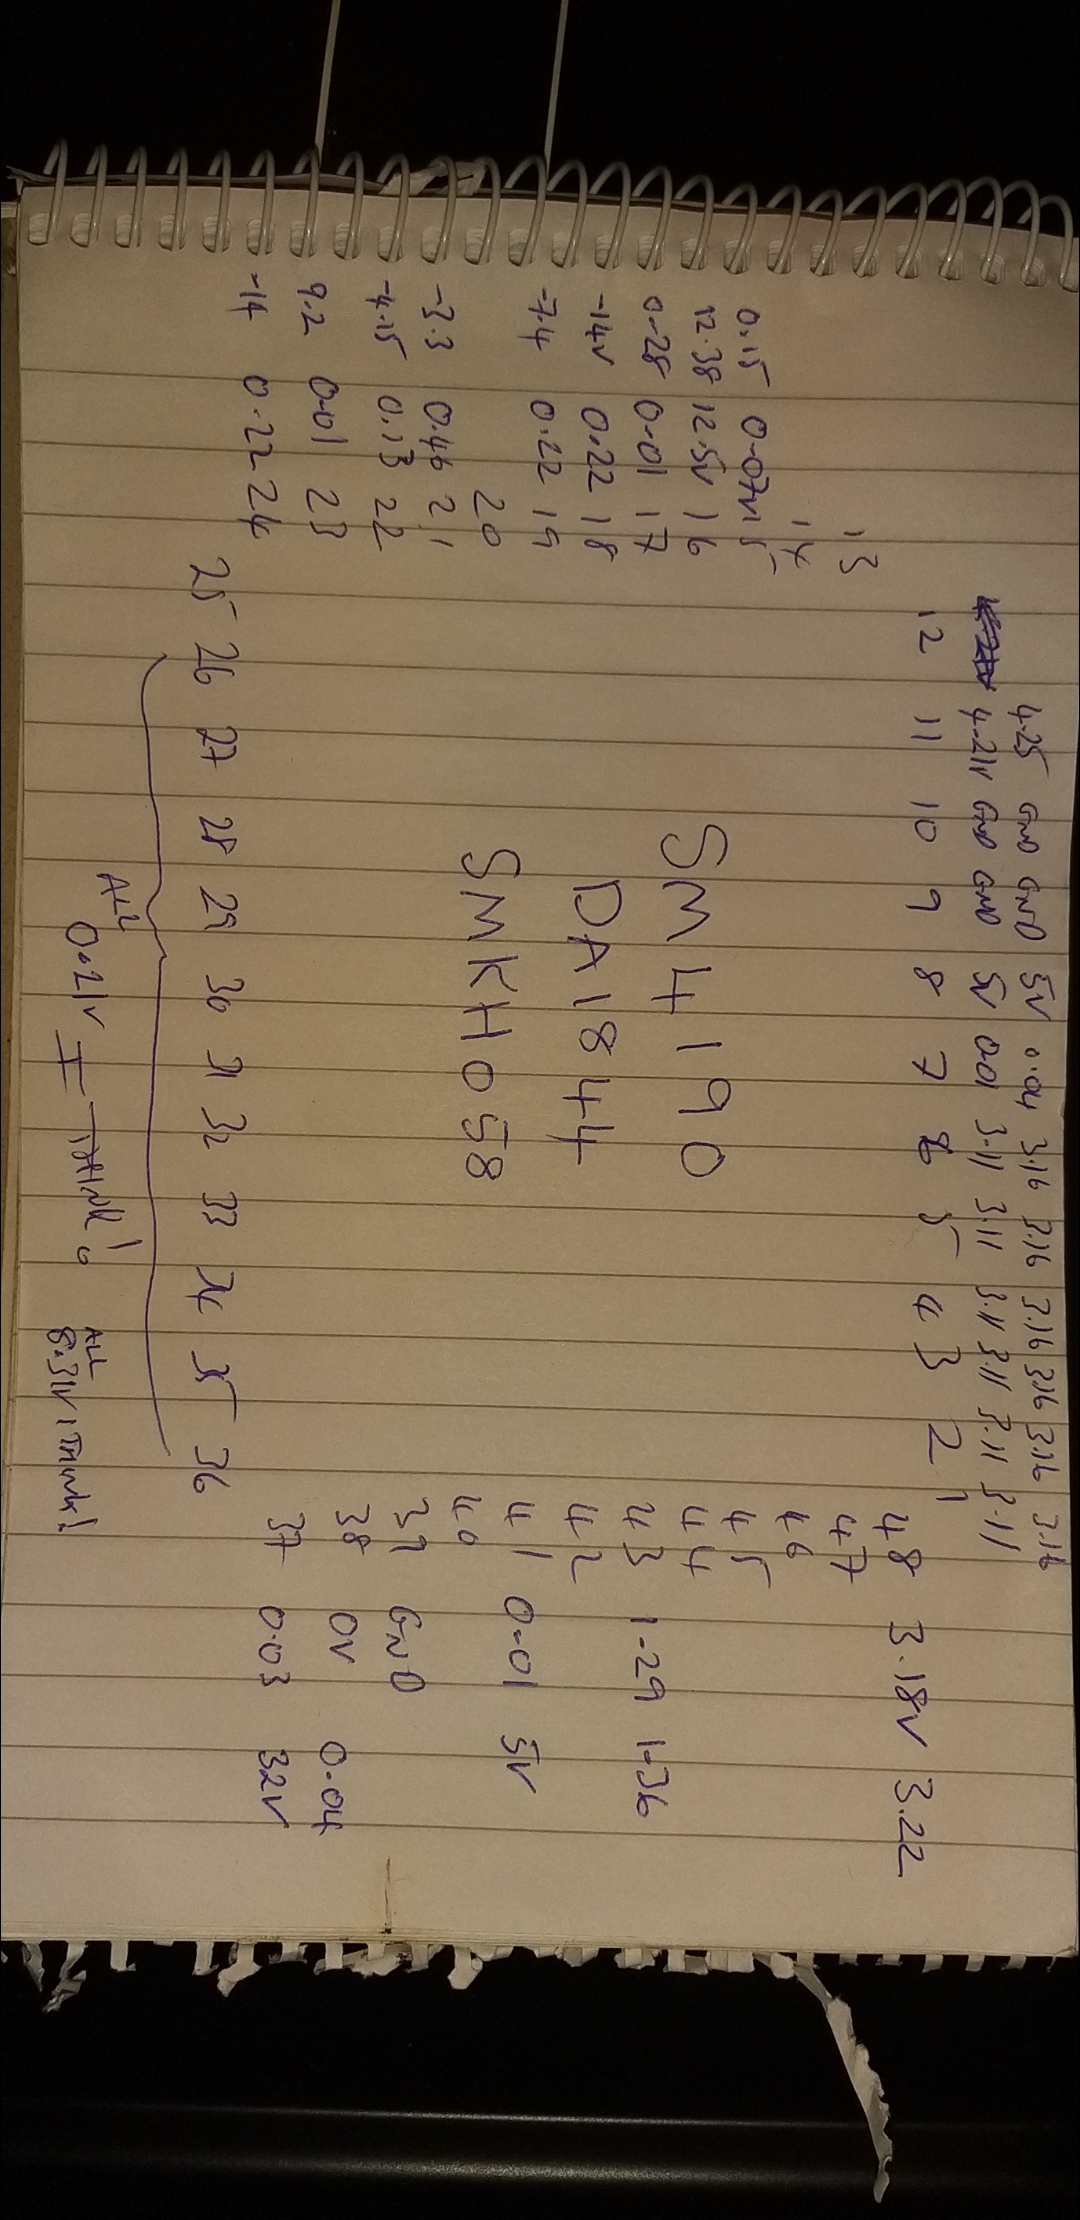 4.25 GND GND 5V 0.04 3.16 3.16 3.16 3.16 3.16 3.16
4.21V GND GND 5V 0.01 3.11 3.11 3.11 3.11 3.11 3.11
12 11 10 9 8 7 6 5 4 3 2 1
13
14
0.15 0.07V 15
12.38 12.5V 16
0.28 0.01 17
-14V 0.22 18
-7.4 0.22 19
20
-3.3 0.46 21
-4.15 0.13 22
9.2 0.01 23
-14 0.22 24
SM4190
DA1844
SMKH058
48 3.18V 3.22
47
46
45
44
43 1.29 1.36
42
41 0.01 5V
40
39 GND
38 0V 0.04
37 0.03 32V
25 26 27 28 29 30 31 32 33 34 35 36
ALL
0.21V I THINK!
ALL
8.31V I Think!